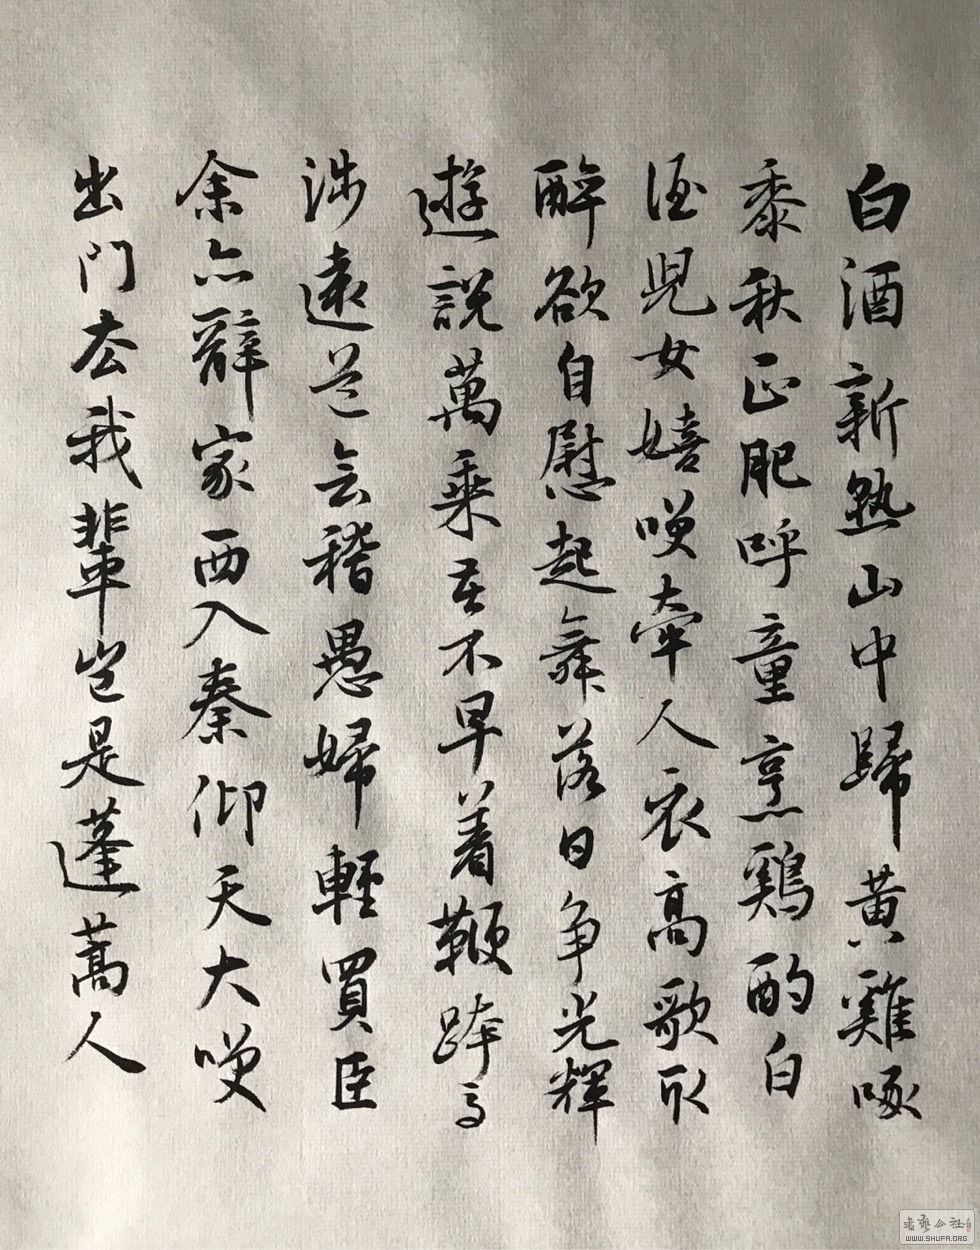 白酒新熟山中歸黃雞啄
黍秋正肥呼童烹鷄酌白
酒兒女嬉咲牽人衣高歌取
醉欲自慰起舞落日争光輝
遊説萬乗苦不早着鞭跨馬
涉遠道会稽愚婦輕買臣
余亦辭家西入秦仰天大咲
出門去我輩豈是蓬蒿人
WWW.SHUFA.ORG